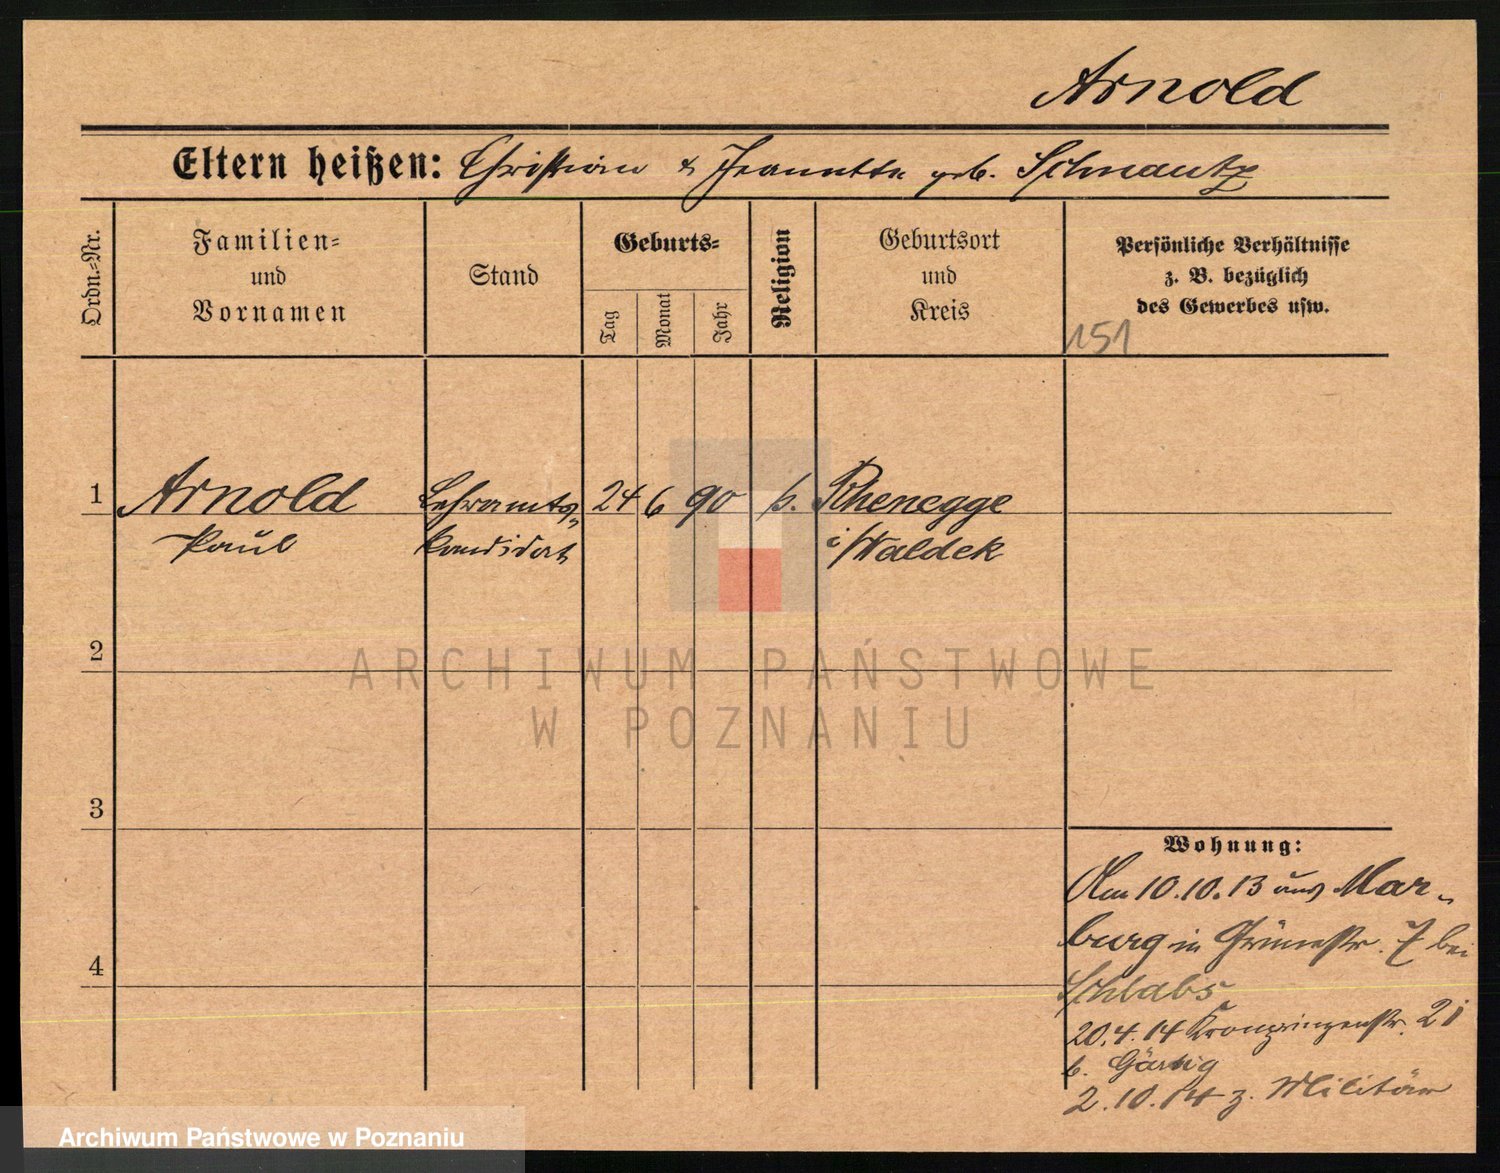 Arnold
Eltern heißen: Christian & Jeannette geb. Schnautz
Ordn.=Nr.
Familien=
und
Vornamen
Stand
Geburts=
Tag
Monat
Jahr
Religion
Geburtsort
und
Kreis
Persönliche Verhältnisse
z. B. bezüglich
des Gewerbes usw.
151
1 Arnold Lehramts= 24 6 90 p. Rhenegge
Paul kandidat i/Waldek
2
ARCHIWUM PAŃSTWOWE
W POZNANIU
3
Wohnung:
Am 10.10.13 aus Mar-
burg in Grünestr. 7 bei
4
Schlabs
20.4.14 Kronprinzenstr. 21
b. Gärtig
2.10.14 z. Militär
Archiwum Państwowe w Poznaniu